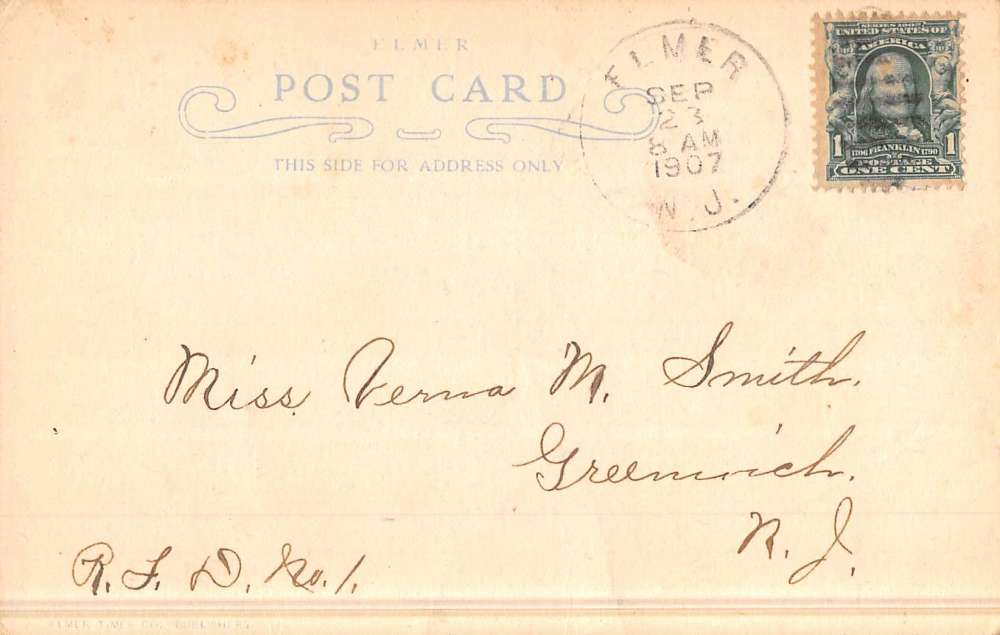 ELMER
POST CARD
THIS SIDE FOR ADDRESS ONLY
ELMER
SEP
23
8 AM
1907
N.J.
SERIES 1902
UNITED STATES OF
AMERICA
1 1
1706 FRANKLIN 1790
POSTAGE
ONE CENT
Miss Verna M. Smith.
Greenwich.
N. J.
R. F. D. No. 1.
ELMER TIMES CO., PUBLISHERS.